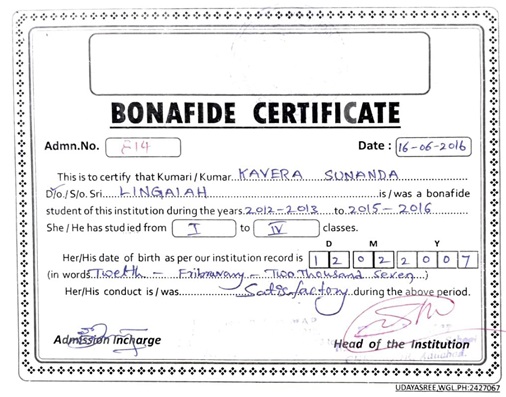 BONAFIDE CERTIFICATE
Admn.No. E14 Date : 16-06-2016
This is to certify that Kumari / Kumar KAVERA SUNANDA
D/o./S/o. Sri LINGAIAH is / was a bonafide
student of this institution during the years 2012-2013 to 2015-2016
She / He has studied from I to IV classes.
D M Y
Her/His date of birth as per our institution record is 1 2 0 2 2 0 0 7
(in words Twelth - Fribravary - Two Thousand Seven )
Her/His conduct is / was Satisfactory during the above period.
Admission Incharge Head of the Institution
UDAYASREE,WGL,PH:2427067